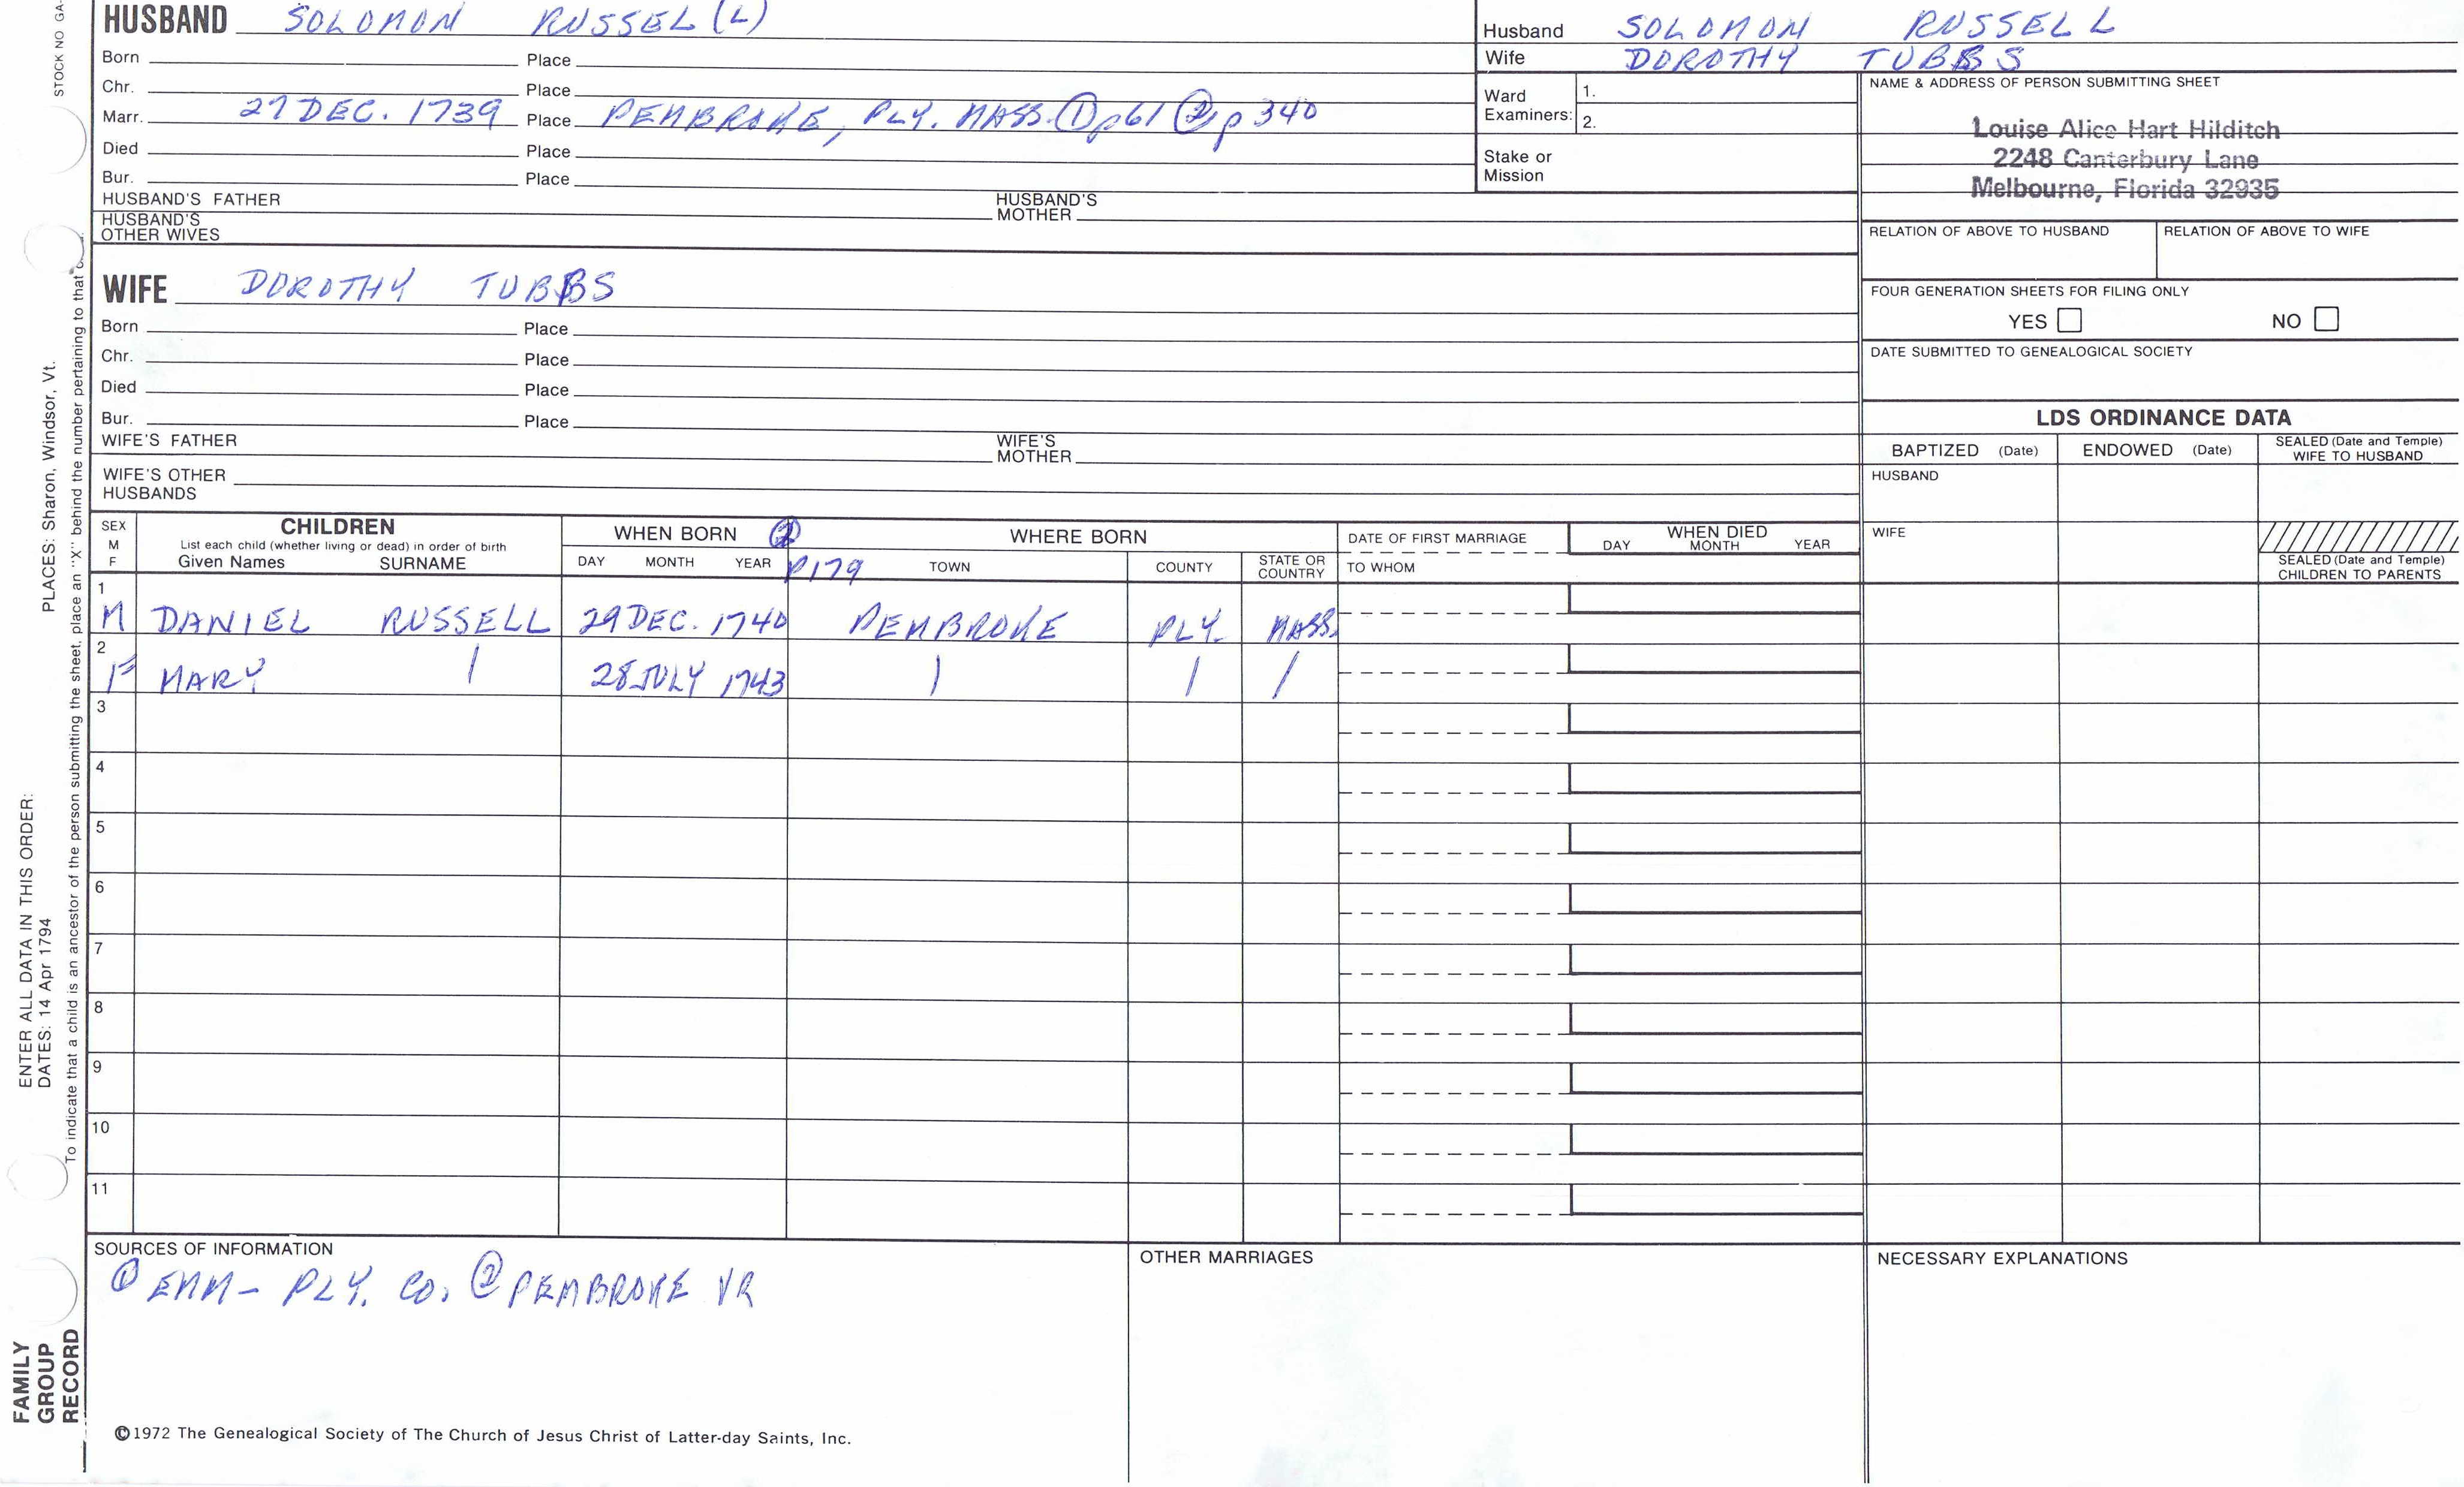 STOCK NO GA-
PLACES: Sharon, Windsor, Vt.
ENTER ALL DATA IN THIS ORDER:
DATES: 14 Apr 1794
To indicate that a child is an ancestor of the person submitting the sheet, place an "X" behind the number pertaining to that
FAMILY
GROUP
RECORD
HUSBAND SOLOMON RUSSEL (L)
Born Place
Chr. Place
Marr. 27 DEC. 1739 Place PEMBROKE, PLY. MASS. ① p61 ② p 340
Died Place
Bur. Place
HUSBAND'S FATHER HUSBAND'S MOTHER
HUSBAND'S
OTHER WIVES
Husband SOLOMON RUSSELL
Wife DOROTHY TUBBS
Ward
Examiners:
1.
2.
Stake or
Mission
NAME & ADDRESS OF PERSON SUBMITTING SHEET
Louise Alice Hart Hilditch
2248 Canterbury Lane
Melbourne, Florida 32935
RELATION OF ABOVE TO HUSBAND RELATION OF ABOVE TO WIFE
FOUR GENERATION SHEETS FOR FILING ONLY
YES NO
DATE SUBMITTED TO GENEALOGICAL SOCIETY
WIFE DOROTHY TUBBS
Born Place
Chr. Place
Died Place
Bur. Place
WIFE'S FATHER WIFE'S MOTHER
WIFE'S OTHER
HUSBANDS
LDS ORDINANCE DATA
BAPTIZED (Date) ENDOWED (Date) SEALED (Date and Temple) WIFE TO HUSBAND
HUSBAND
WIFE
SEALED (Date and Temple)
CHILDREN TO PARENTS
SEX
M
F
CHILDREN
List each child (whether living or dead) in order of birth
Given Names SURNAME
WHEN BORN ②
DAY MONTH YEAR P179
WHERE BORN
TOWN COUNTY STATE OR COUNTRY
DATE OF FIRST MARRIAGE
TO WHOM
WHEN DIED
DAY MONTH YEAR
1
M DANIEL RUSSELL 29 DEC. 1740 PEMBROKE PLY. MASS.
2
F MARY | 28 JULY 1743 | | /
3
4
5
6
7
8
9
10
11
SOURCES OF INFORMATION
① EMM - PLY. CO. ② PEMBROKE VR
OTHER MARRIAGES
NECESSARY EXPLANATIONS
©1972 The Genealogical Society of The Church of Jesus Christ of Latter-day Saints, Inc.